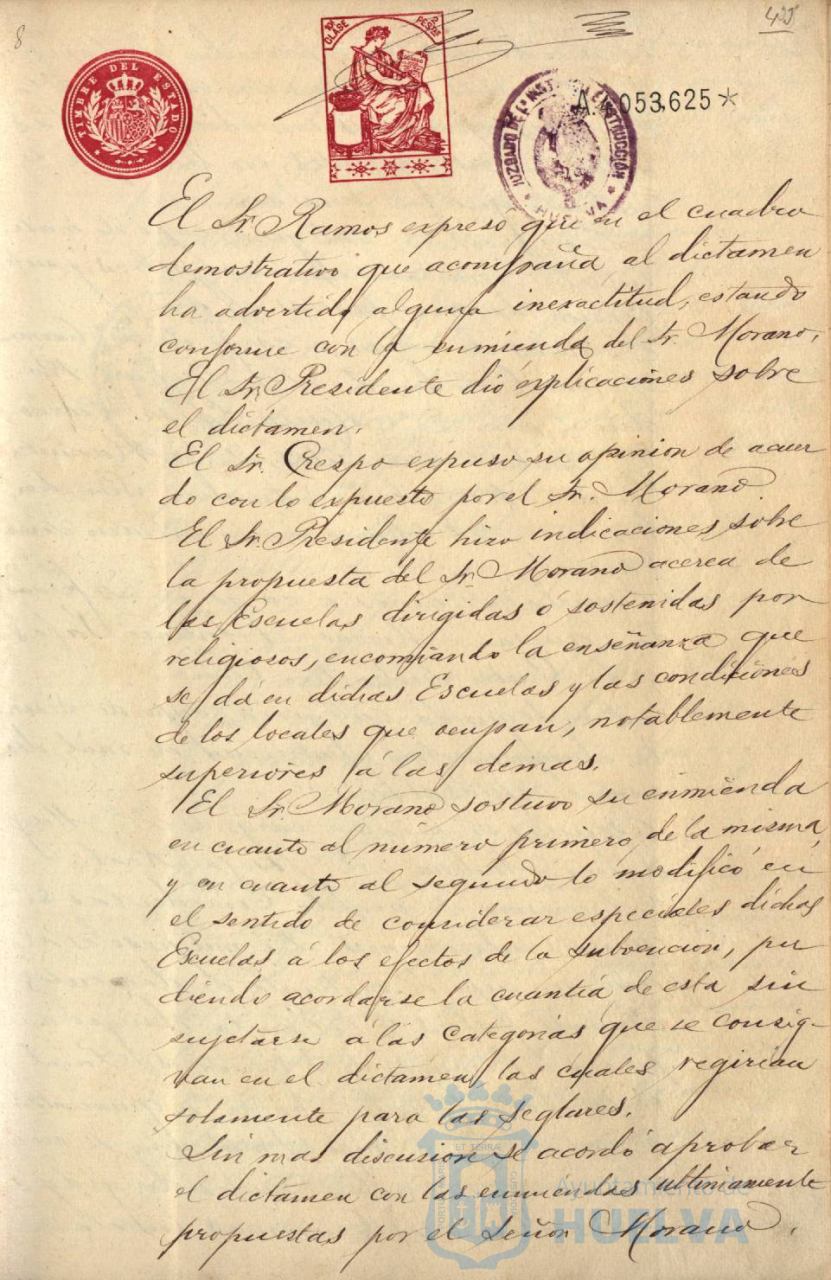 8
425
TIMBRE DEL ESTADO
10ª CLASE 2 PESETAS
JUZGADO DE 1ª INSTA E INSTRUCCIÓN
HUELVA
053,625*
El Sr. Ramos expresó que en el cuadro
demostrativo que acompaña al dictamen
ha advertido alguna inexactitud, estando
conforme con la enmienda del Sr. Morano.
El Sr. Presidente dió explicaciones sobre
el dictamen.
El Sr. Crespo expuso su opinion de acuer
do con lo expuesto por el Sr. Morano
El Sr. Presidente hizo indicaciones sobre
la propuesta del Sr. Morano acerca de
las Escuelas dirigidas ó sostenidas por
religiosos, encomiando la enseñanza que
se dá en dichas Escuelas y las condiciones
de los locales que ocupan, notablemente
superiores á las demas.
El Sr. Morano sostuvo su enmienda
en cuanto al número primero de la misma,
y en cuanto al segundo lo modificó en
el sentido de considerar especiales dichas
Escuelas á los efectos de la subvencion, pu
diendo acordarse la cuantía de esta sin
sujetarse á las categorias que se consig-
nan en el dictamen, las cuales regirian
solamente para las seglares.
Sin mas discusion se acordó aprobar
el dictamen con las enmiendas ultimamente
propuestas por el Señor Morano.
Ayuntamiento de
HUELVA